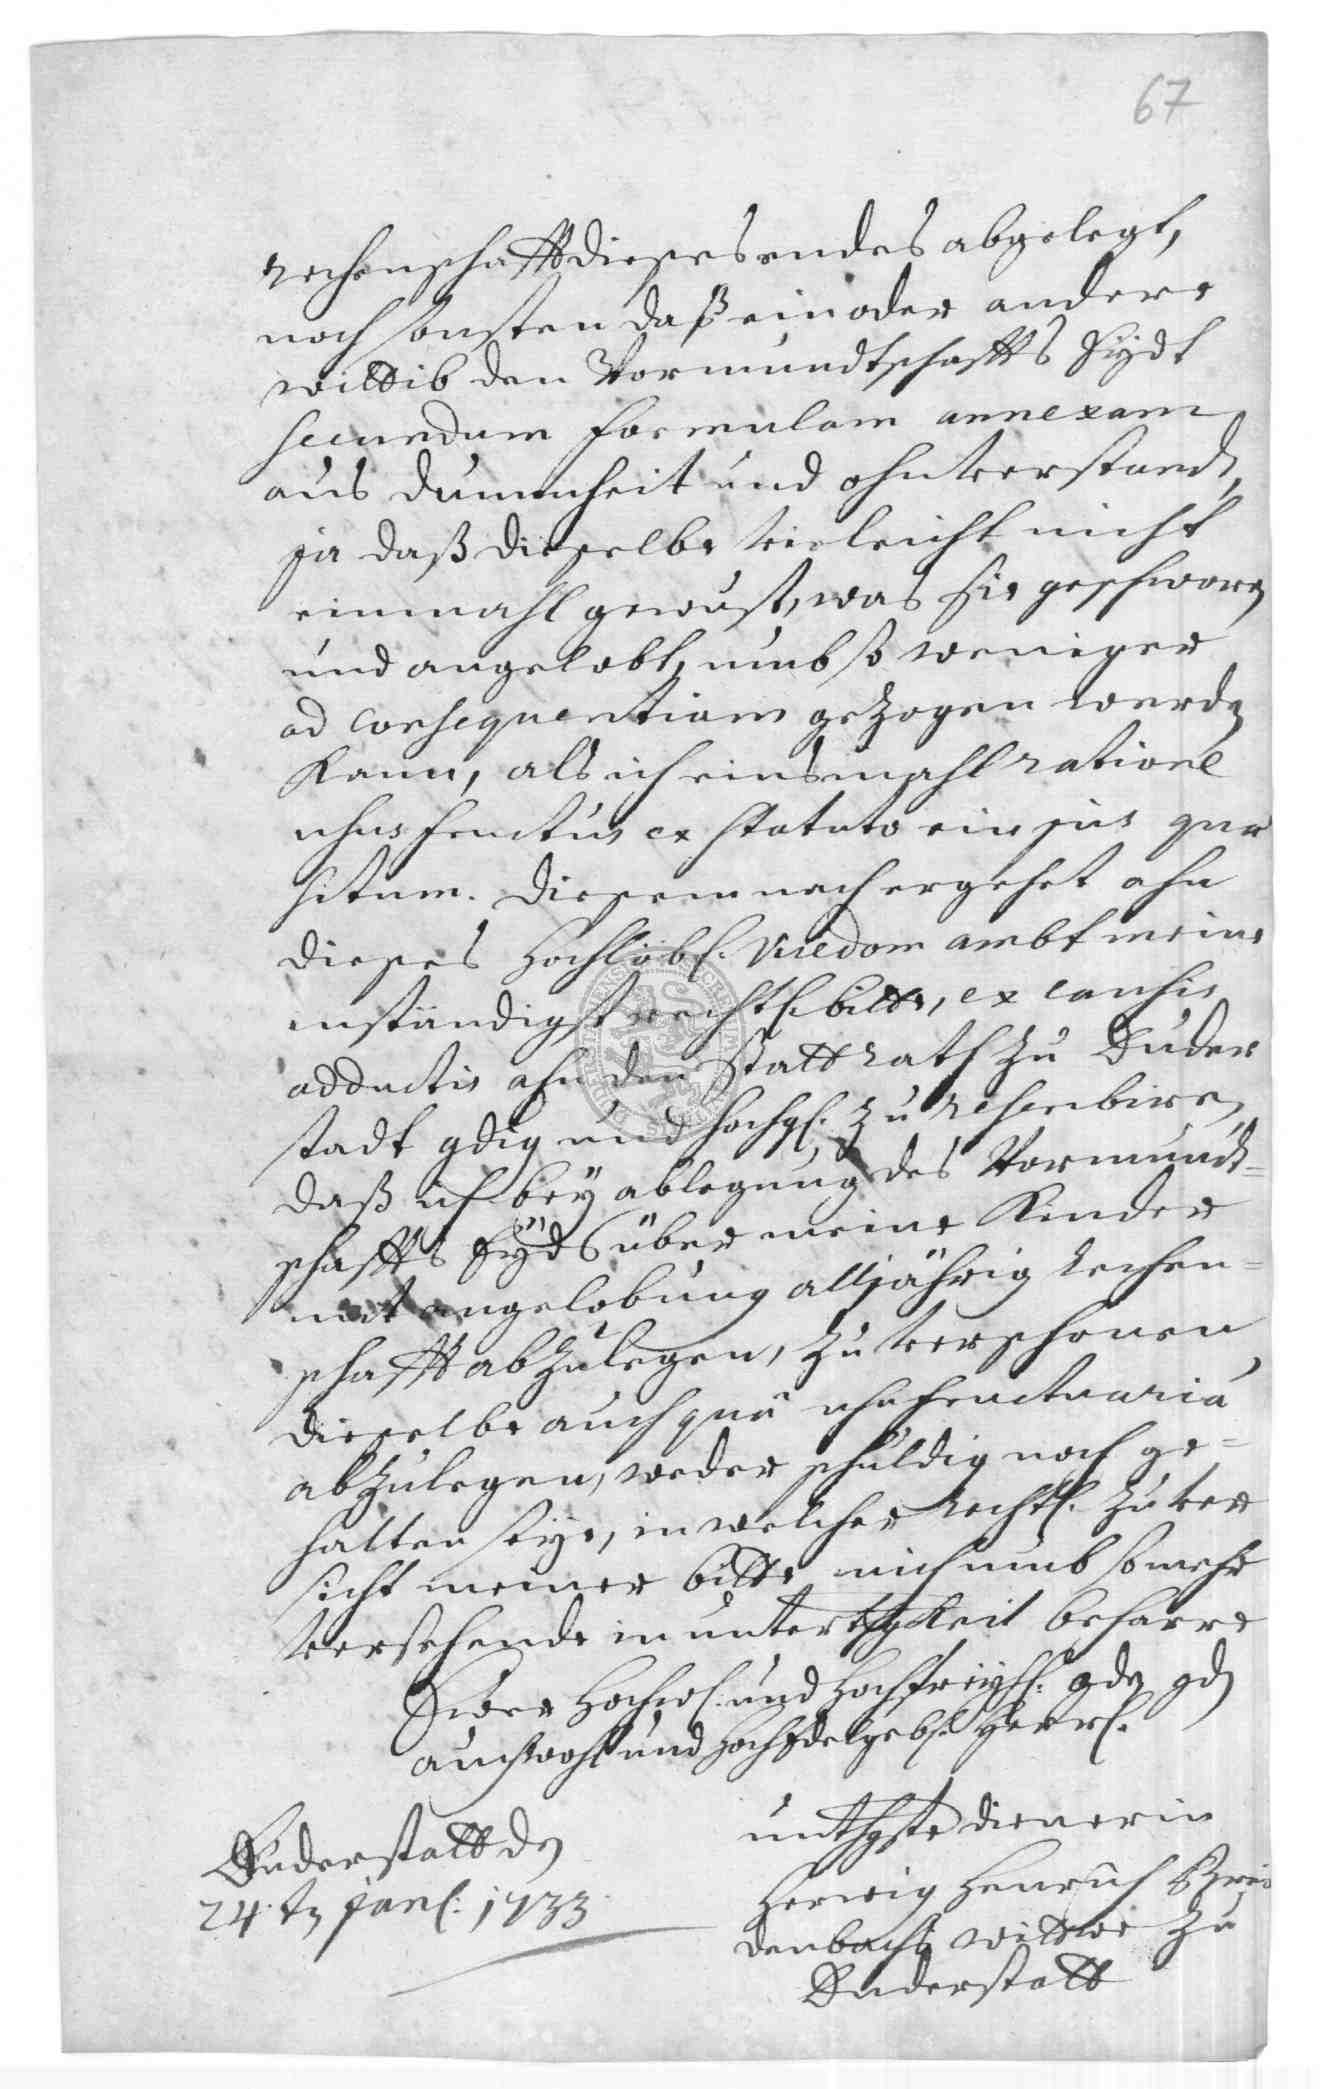 67
rechenschafft dieses endes abgelegt,
noch sonsten daß ein oder andere
wittib den Vormundtschaffts Eydt
secundum formulam annexam
aus dummheit und ohnverstandt,
ja daß dieselbe vieleicht nicht
einmahl gewust, was sie geschworen
und angelobt, umb so weniger
ad consequentiam gezogen werden
kann, als ich einsmahl ratione
usus fructus ex statuto ein jus quae
situm. diesem nach ergehet ahn
dieses hochlöbl. Vicedom ambt meine
inständigst rechtl. bitte, ex causis
adductis ahn den Statt rath zu Duder
stadt gdig und hochgl. zu rescribiren,
daß ich bey ablegung des Vormundt=
schaffts Eyds über meine Kinder
mit angelobung alljährig rechen=
schafft abzulegen, zu verschonen,
dieselbe auch quà usufructuaria
abzulegen, weder schuldig noch ge=
halten seye, in welcher rechtl. zuver
sicht meiner bitte mich umb so mehr
versehende in unterthgkeit beharre
Ewer Hochw. und Hochfreyhl. gden gdl
auch wohl und Hochedelgebl. Herrl.
unthgste dienerin
Duderstatt den
24.ten janl: 1733
Herwig Henrich
denbachs wittwe zu
Duderstatt